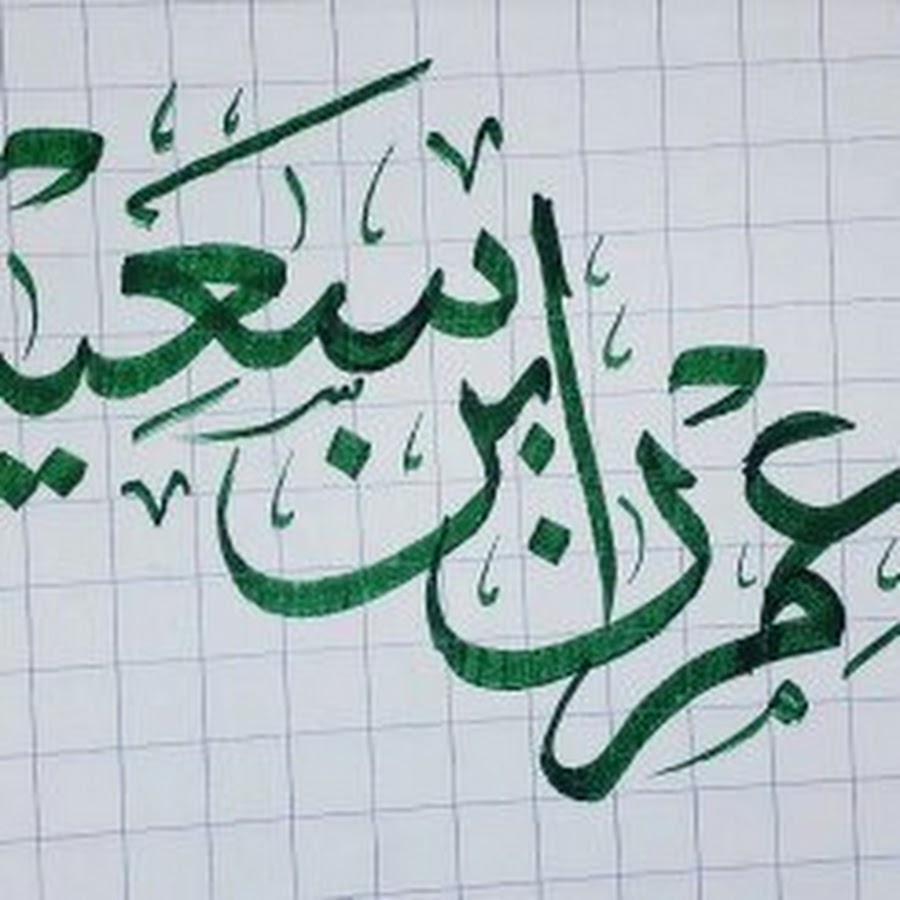 عمران بن سعيـ